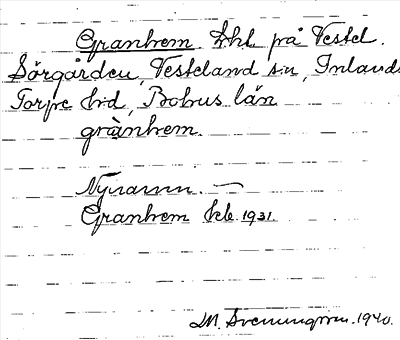 Granhem. Lht på Vestel.
Sörgården, Vesteland sn, Inlands
Torpe hd, Bohus län
grànhem.
Nynamn. —
Granhem kb. 1931.
M. Svenungsson. 1940.